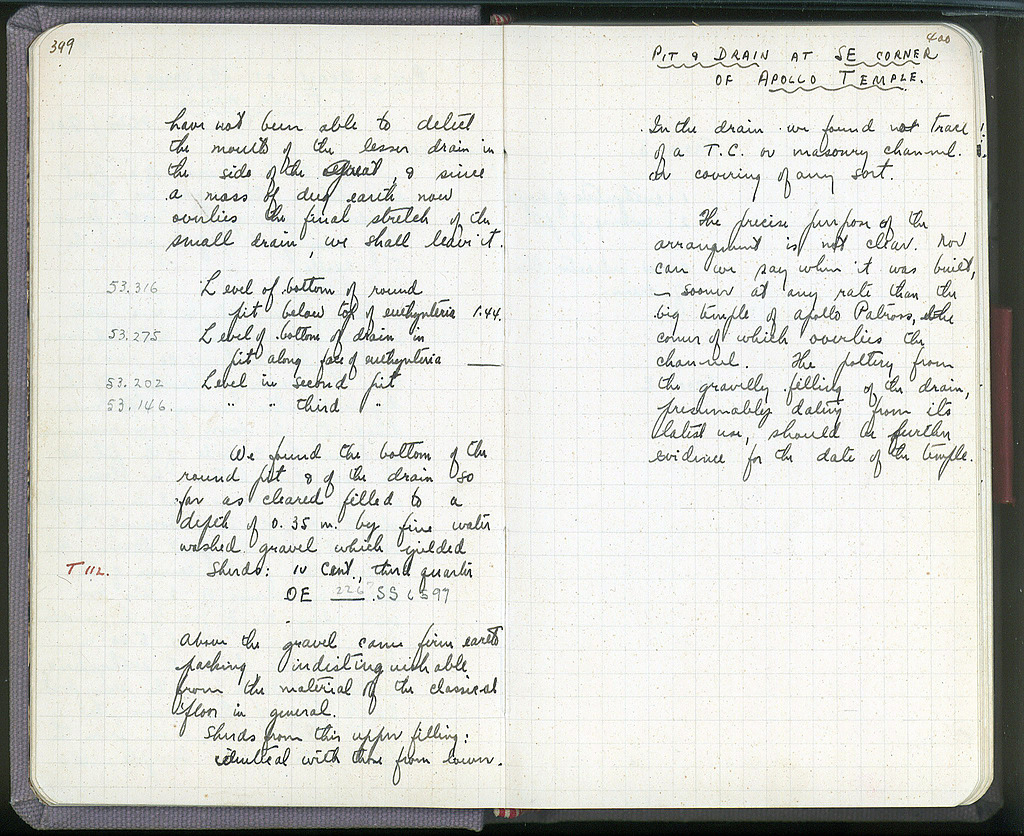 399
have not been able to detect
the mouth of the lesser drain in
the side of the Great, & since
a mass of dug earth now
overlies the final stretch of the
small drain, we shall leave it.
53.316 Level of bottom of round
pit below top of euthynteria 1.44.
53.275 Level of bottom of drain in
pit along face of euthynteria ___
53.202 Level in second pit
53.146. " " third "
We found the bottom of the
round pit & of the drain so
far as cleared filled to a
depth of 0.35 m. by fine water
washed gravel which yielded
T 112. Sherds: IV Cent., third quarter
OE 226? SS 6597
Above the gravel came firm earth
packing indistinguishable
from the material of the classical
floor in general.
Sherds from this upper filling:
identical with those from lower.
400
PIT & DRAIN AT SE CORNER
OF APOLLO TEMPLE.
In the drain we found not trace
of a T.C. or masonry channel.
or covering of any sort.
The precise purpose of the
arrangement is not clear. Nor
can we say when it was built,
— sooner at any rate than the
big temple of Apollo Patroos, the
corner of which overlies the
channel. The pottery from
the gravelly filling of the drain,
presumably dating from its
latest use, should be further
evidence for the date of the temple.